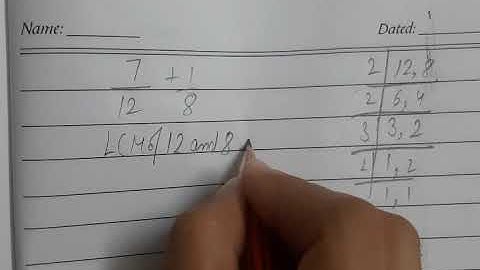 Name:
Dated:
7 + 1
12 8
LCM of 12 and 8
2 12, 8
2 6, 4
3 3, 2
2 1, 2
1, 1